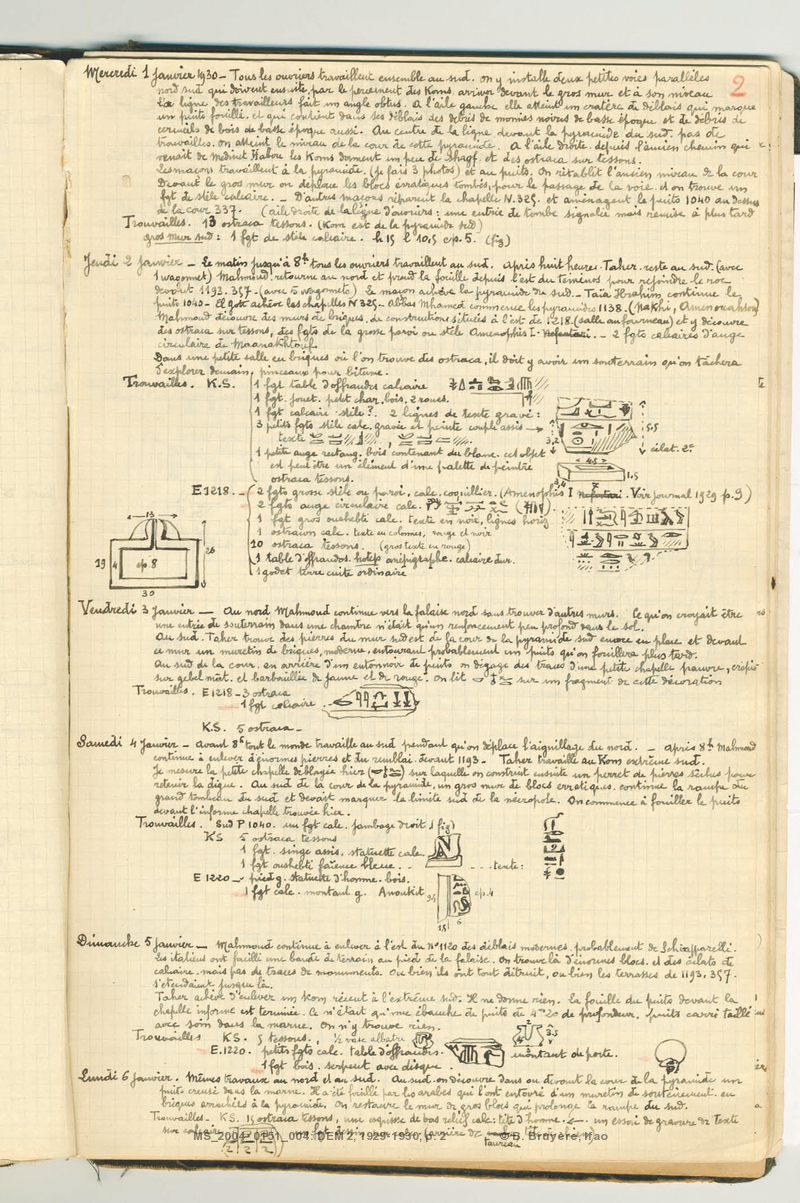 2
Mercredi 1 Janvier 1930 — Tous les ouvriers travaillent ensemble au sud. On y installe deux petites voies parallèles
nord sud qui doivent ensuite, par le percement des Koms, arriver devant le gros mur et à son niveau
La ligne des travailleurs fait un angle obtus. A l'aile gauche elle atteint un cratère de déblais qui marque
un puits fouillé. et qui contient dans ses déblais des débris de momies noires de basse époque et de débris de
cercueils de bois de basse époque aussi. Au centre de la ligne devant la pyramide du sud. pas de
trouvailles. on atteint le niveau de la cour de cette pyramide. A l'aile droite. depuis l'ancien chemin qui
venait de Médinet Habou les Koms donnent un peu de shagf. et des ostraca sur tessons.
Les maçons travaillent à la pyramide. (je fais 3 photos) et au puits. On rétablit l'ancien niveau de la cour
Devant le gros mur on déplace les blocs erratiques tombés, pour le passage de la voie. et on trouve un
fgt de stèle calcaire. — D'autres maçons réparent la chapelle N.325. et aménagent le puits 1040 au dessus
de la cour 337. (aile droite de la ligne d'ouvriers : une entrée de tombe signalée mais remise à plus tard
Trouvailles. 13 ostraca tessons. (Kom est de la pyramide sud)
gros mur sud : 1 fgt de stèle calcaire. h 15 l 10,5 ep. 5. (fig)
Jeudi 2 Janvier — Le matin jusqu'à 8h tous les ouvriers travaillent au sud. Après huit heures. Taher. reste au sud. (avec
1 wagonnet) Mahmoud retourne au nord et prend la fouille depuis l'est du téménos pour rejoindre le roc
devant 1193. 357. (avec 5 wagonnets) Le maçon achève la pyramide du sud. — Taïa Ibrahim continue le
puits 1040. El Goté achève les chapelles N 325. Abbas Mhamed commence les pyramides 1138. (Nakhi, Amennakht)
Mahmoud découvre des murs de briques, de constructions situées à l'est de 1218. (salle au fourneau) et y découvre
des ostraca sur tessons, des fgts de la grosse paroi ou stèle Amenophis I. Nefertari. — 2 fgts calcaires d'auge
circulaire de Maanakhtouf
Dans une petite salle en briques où l'on trouve des ostraca, il doit y avoir un souterrain qu'on tâchera
d'explorer demain, pinceaux pour bitume.
Trouvailles. K.S. 1 fgt table d'offrandes calcaire
1 fgt. jouet. petit char, bois, 2 roues.
1 fgt calcaire stèle ?. 2 lignes de texte gravé :
3 petits fgts stèle calc. gravée et peinte couple assis →
texte
5,5
3,2
éclat. 2e
1 petite auge rectang. bois contenant du blanc. cet objet
est peut être un élément d'une palette de peintre
4,5
1,5
ostraca tessons.
E 1218. — 2 fgts grosse stèle ou paroi, calc. coquillier. (Amenophis I Nefertari. Voir journal 1929 p. 9)
2 fgts auge circulaire calc.
1 fgt gros oushebti calc. texte en noir, lignes horiz
1 ostracon calc. texte en colonnes, rouge et noir
10 ostraca tessons. (gros texte en rouge)
1 table d'offrandes. hotep anépigraphe. calcaire dur.
1 godet terre cuite ordinaire
13
26
19
4
ep. 8
30
Vendredi 3 Janvier — Au nord Mahmoud continue vers la falaise nord sans trouver d'autres murs. Ce qu'on croyait être
une entrée de souterrain dans une chambre n'était qu'un renfoncement peu profond dans le sol.
Au sud. Taher trouve des pierres du mur sud est de la cour de la pyramide sud encore en place et devant
ce mur un muretin de briques, moderne, entourant probablement un puits qu'on fouillera plus tard.
Au sud de la cour, en arrière d'un entonnoir de puits on dégage des traces d'une petite chapelle pauvre, crépie
sur gebel mat. et barbouillée de jaune et de rouge. On lit sur un fragment de cette décoration
Trouvailles. E 1218 — 3 ostraca
1 fgt calcaire.
K.S. 5 ostraca —
Samedi 4 Janvier — Avant 8h tout le monde travaille au sud pendant qu'on déplace l'aiguillage du nord. — Après 8h Mahmoud
continue à enlever d'énormes pierres et du remblai. devant 1193 — Taher travaille au Kom extrême sud.
Je mesure la petite chapelle déblayée hier sur laquelle on construit ensuite un perret de pierres sèches pour
retenir la digue. Au sud de la cour de la pyramide, un gros mur de blocs erratiques. continue la rampe du
grand tombeau du sud et devait marquer la limite sud de la nécropole. On commence à fouiller le puits
devant l'informe chapelle trouvée hier.
Trouvailles. Sud P 1040. un fgt calc. jambage droit. (fig)
KS 5 ostraca tessons
1 fgt. singe assis. statuette calc.
1 fgt oushebti faïence bleue. — — — texte :
E 1220 — pied g. statuette d'homme. bois.
1 fgt calc. montant g. Anoukit
24
ep. 4
15
6
Dimanche 5 Janvier — Mahmoud continue à enlever à l'est du n° 1120 des déblais modernes. probablement de Schiapparelli.
Les italiens ont fouillé une bande de terrain au pied de la falaise. On trouve là d'énormes blocs. et des éclats de
calcaire. mais pas de traces de monuments. Ou bien ils ont tout détruit, ou bien les terrasses de 1193, 357.
s'étendaient jusque là.
Taher achève d'enlever un Kom récent à l'extrême sud. Il ne donne rien. La fouille du puits devant la
chapelle informe est terminée. Ce n'était qu'une ébauche de puits de 4m20 de profondeur. puits carré taillé
avec soin dans la marne. On n'y trouve rien.
Trouvailles KS. 5 tessons., 1/2 vase albatre
E.1220. petits fgts calc. table d'offrandes. montant de porte.
1 fgt bois. serpent avec disque.
Lundi 6 Janvier. Mêmes travaux au nord et au sud. Au sud. on découvre dans ou devant la cour de la pyramide un
puits creusé dans la marne. Il a été fouillé par les arabes qui l'ont entouré d'un muretin de soutènement. en
briques arrachées à la pyramide. On restaure le mur de gros blocs qui prolonge la rampe du sud.
Trouvailles — KS. 15 ostraca tessons, une esquisse de bas relief calc. tête d'homme. ←. un essai de gravure de texte
sur calcaire
taureau
MS_2004_0151_004. DEM 2, 1929-1930, p. 2 © B. Bruyère, Ifao